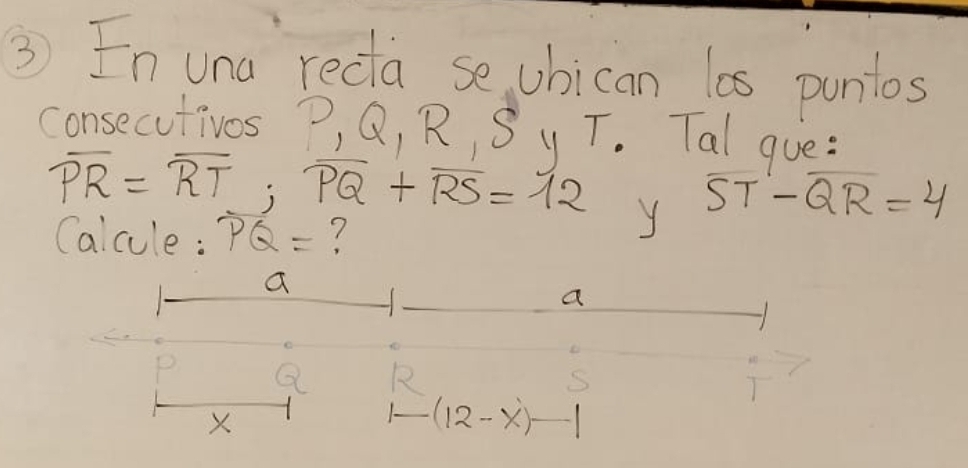 ③ En una recta se ubican los puntos
consecutivos P, Q, R, S y T. Tal que:
P̅R̅ = R̅T̅ ; P̅Q̅ + R̅S̅ = 12 y S̅T̅ - Q̅R̅ = 4
Calcule: P̅Q̅ = ?
a a
P Q R S T
x (12-x)